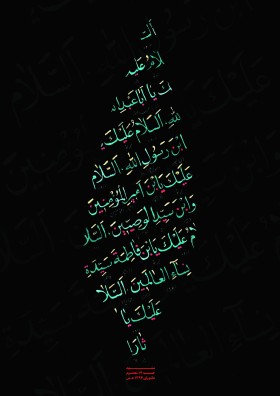 الـ
لامُ عَلَيـ
ـكَ يا اَبا عَبدِ ا
للهِ اَلسَّلامُ عَلَيْكَ يَـ
ابْنَ رَسُولِ اللهِ اَلسَّلامُ
عَلَيْكَ يَابْنَ اَميرِ الْمُؤْمِنينَ
وَابْنَ سَيِّدِ الْوَصِيّينَ اَلسَّلا
مُ عَلَيْكَ يَابْنَ فاطِمَةَ سَيِّدَةِ
نِساءِ الْعالَمينَ اَلسَّلا
عَلَيْكَ يا
ثارَ ا